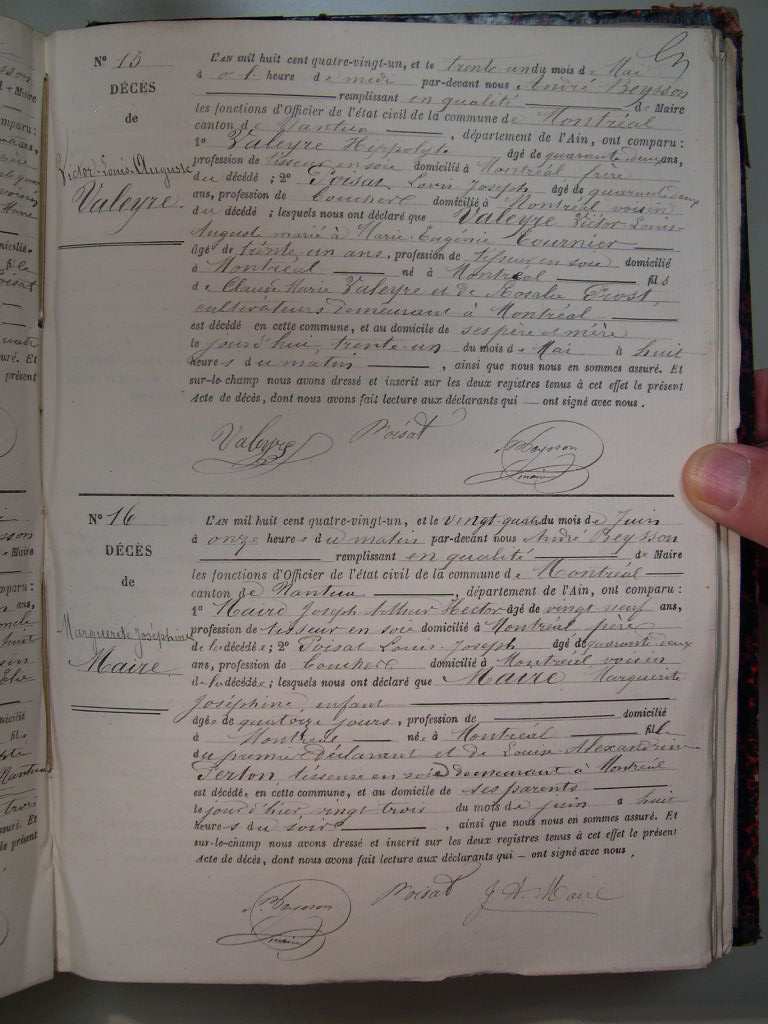 N° 15
DÉCÈS
de
Victor-Louis-Auguste
Valeyre.
L'AN mil huit cent quatre-vingt-un, et le trente un du mois de Mai
à heure de par-devant nous André Beysson
remplissant en qualité de Maire
les fonctions d'Officier de l'état civil de la commune de Montréal
canton de Nantua, département de l'Ain, ont comparu :
1° Valeyre Hippolyte âgé de quarante deux ans,
profession de tisseur en soie domicilié à Montréal frère
du décédé ; 2° Poisat Louis Joseph âgé de quarante deux
ans, profession de domicilié à Montréal voisin
du décédé ; lesquels nous ont déclaré que Valeyre Victor Louis
August marié à Marie-Eugénie Tournier
âgé de trente un ans, profession de tisseur en soie domicilié
à Montréal né à Montréal fils
de Claude Marie Valeyre et de Rosalie Prost,
cultivateurs demeurant à Montréal
est décédé en cette commune, et au domicile de ses père et mère
le jourd'hui, trente-un du mois de Mai à huit
heures du matin, ainsi que nous nous en sommes assuré. Et
sur-le-champ nous avons dressé et inscrit sur les deux registres tenus à cet effet le présent
Acte de décès, dont nous avons fait lecture aux déclarants qui — ont signé avec nous.
Valeyre Poisat Beysson
maire
N° 16
DÉCÈS
de
Marguerite Joséphine
Maire.
L'AN mil huit cent quatre-vingt-un, et le vingt-quatre du mois de Juin
à onze heures du matin par-devant nous André Beysson
remplissant en qualité de Maire
les fonctions d'Officier de l'état civil de la commune de Montréal
canton de Nantua, département de l'Ain, ont comparu :
1° Maire Joseph Arthur Hector âgé de vingt neuf ans,
profession de tisseur en soie domicilié à Montréal père
de la décédée ; 2° Poisat Louis-Joseph âgé de quarante deux
ans, profession de domicilié à Montréal voisin
de la décédée ; lesquels nous ont déclaré que Maire Marguerite
Joséphine, enfant
âgée de quatorze jours, profession de domicilié
à Montréal née à Montréal fille
du premier Déclarant et de Louise-Alexandrine
Perton, tisseuse en soie demeurant à Montréal
est décédée, en cette commune, et au domicile de ses parents
le jour d'hier vingt trois du mois de juin à huit
heures du soir, ainsi que nous nous en sommes assuré. Et
sur-le-champ nous avons dressé et inscrit sur les deux registres tenus à cet effet le présent
Acte de décès, dont nous avons fait lecture aux déclarants qui — ont signé avec nous.
Beysson Poisat J A Maire
maire